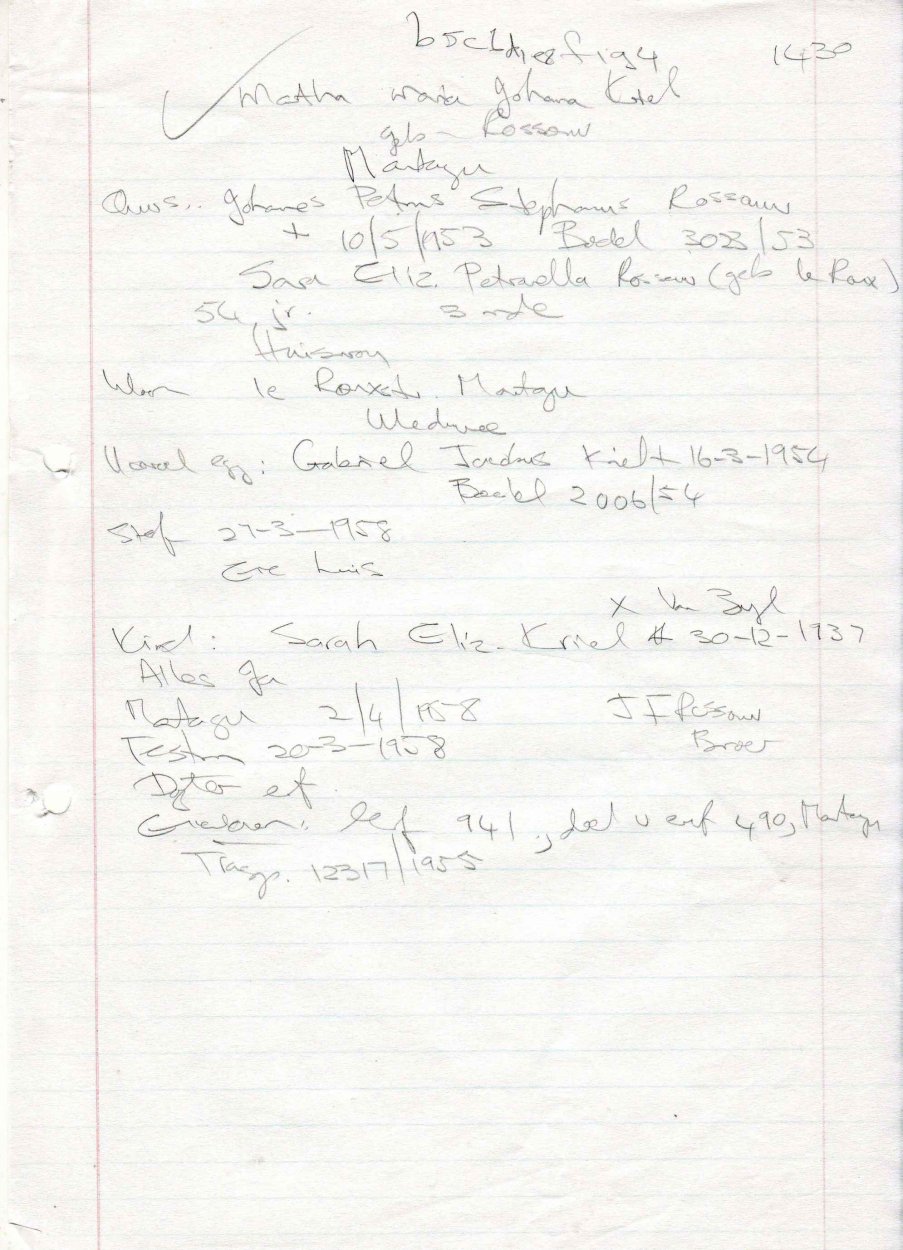 b5c1d1e8f1g4 1430
Martha Maria Johana Kriel
geb - Rossouw
Montagu
Ouers.. Johanes Petrus Stephanus Rossouw
+ 10/5/1953 Boedel 3023/53
Sara Eliz. Petronella Rossouw (geb le Roux)
54 jr. 3 mde
Huisvrou
Woon le Rouxstr. Montagu
Weduwee
Vooroorl egg: Gabriel Jordaus Kriel + 16-3-1954
Boedel 2006/54
Sterf 27-3-1958
Eie huis
x Van Zyl
Kind: Sarah Eliz. Kriel # 30-12-1937
Alles Ja
Montagu 2/4/1958 J F Rossouw
Testm 20-3-1958 Broer
Dogter erf.
erf 941, deel v erf 490, Montagu
Trasp. 12317/1955